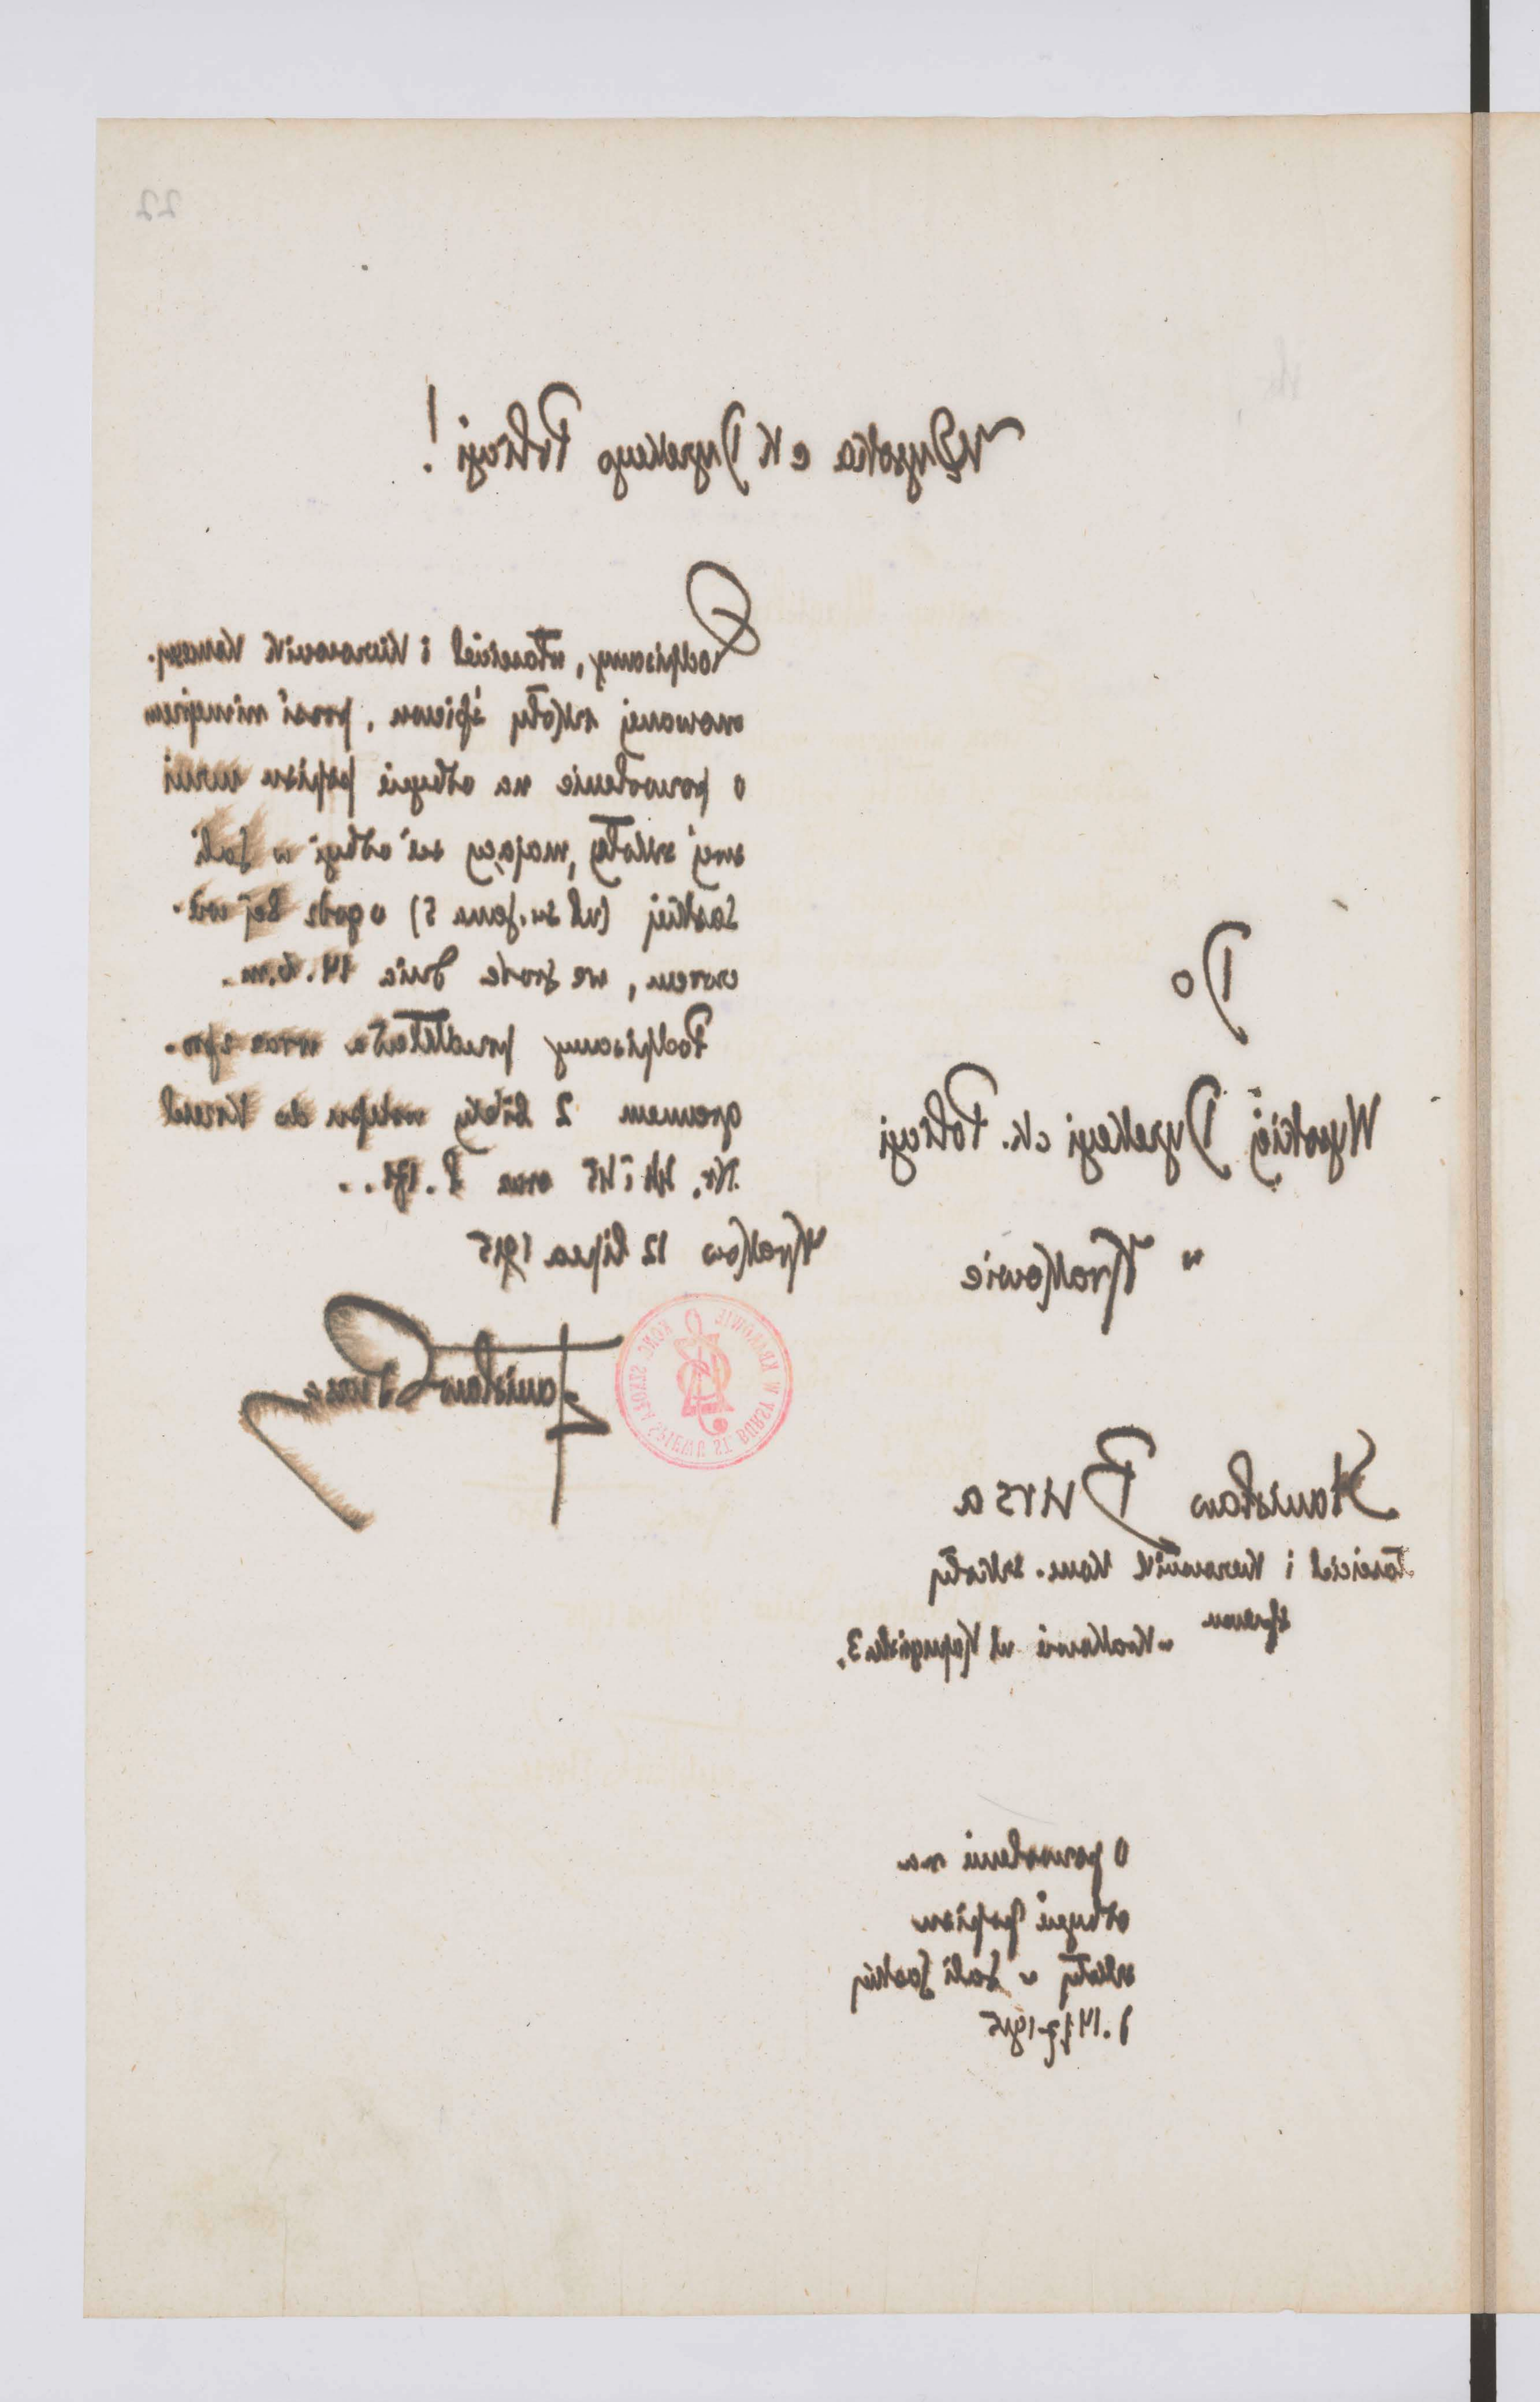 22
Wysoka c K Dyrekcyo Policyi!
Podpisany, właściciel i Kierownik Koncesy-
onowanej szkoły śpiewu, prosi niniejszem
o pozwolenie na odbycie popisu uczni
swej szkoły, mający się odbyć w Sali
Saskiej (ul św. Jana 5) o godz 6ej wie-
czorem, we środę dnia 14. b.m.
Podpisany przedkłada wraz z pro-
gramem 2 bilety wstępu do Krzeseł
Nr. 44 i 45
Kraków 12 lipca 1915
Stanisław Bursa
KONC. SZKOŁA ŚPIEWU ST. BURSY W KRAKOWIE
Do
Wysokiej Dyrekcyi ck. Policyi
w Krakowie
Stanisław Bursa
właściciel i Kierownik Konc. szkoły
śpiewu
w Krakowie ul Kapucyńska 3.
o pozwolenie na
odbycie popisu
szkoły w Sali Saskiej
d. 14/7 1915